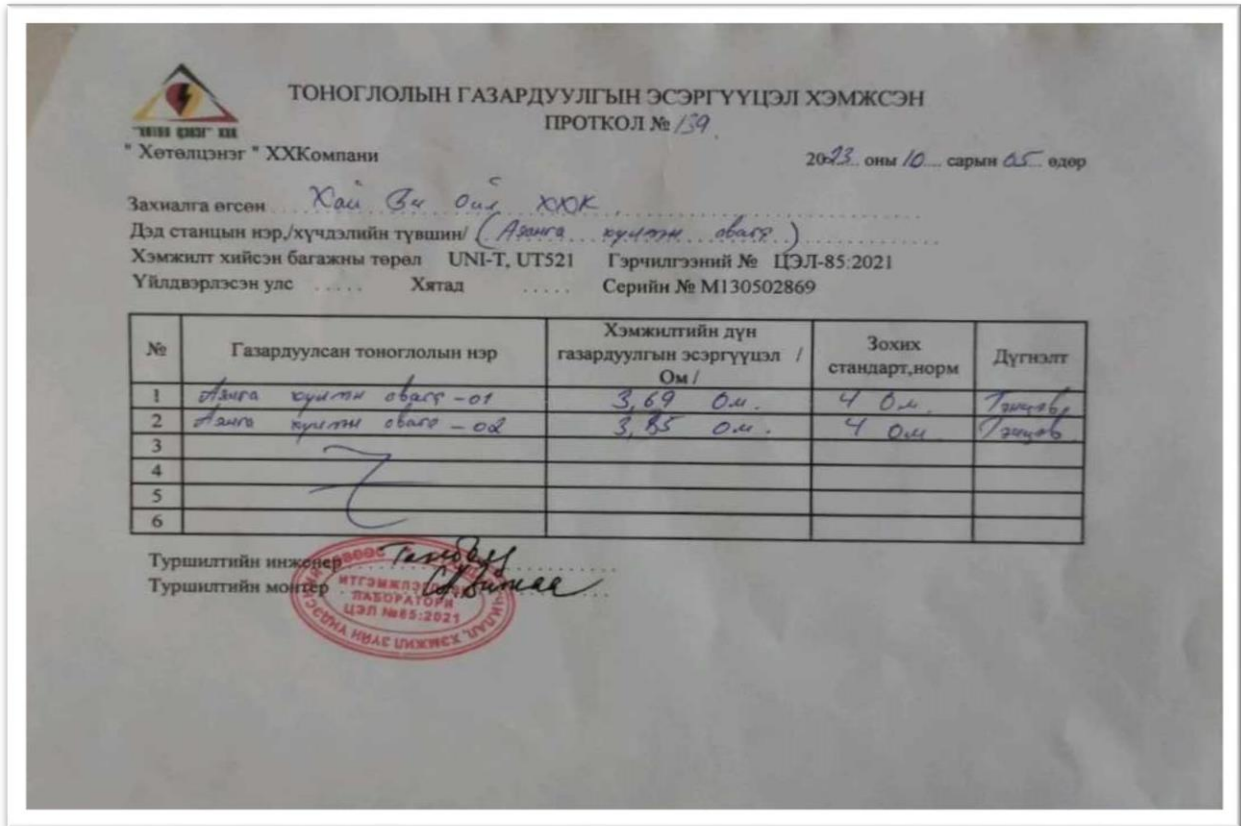 "ХӨТӨЛ ЦЭНЭГ" ХХК
ТОНОГЛОЛЫН ГАЗАРДУУЛГЫН ЭСЭРГҮҮЦЭЛ ХЭМЖСЭН
ПРОТКОЛ № 139
" Хөтөлцэнэг " ХХКомпани
2023 оны 10 сарын 05 өдөр
Захиалга өгсөн Хай Ви Ойл ХХК
Дэд станцын нэр,/хүчдэлийн түвшин/ (Аянга
Хэмжилт хийсэн багажны төрөл UNI-T, UT521 Гэрчилгээний № ЦЭЛ-85:2021
Үйлдвэрлэсэн улс ..... Хятад ..... Серийн № М130502869
№ Газардуулсан тоноглолын нэр Хэмжилтийн дүн газардуулгын эсэргүүцэл / Ом / Зохих стандарт,норм Дүгнэлт
1 Аянга -01 3,69 Ом. 4 Ом. Тэнцэв
2 Аянга -02 3,85 Ом. 4 Ом Тэнцэв
3
4
5
6
Туршилтийн инженер
Туршилтийн монтёр
ИТГЭМЖЛЭГДСЭН
ЛАБОРАТОРИ
ЦЭЛ №85:2021